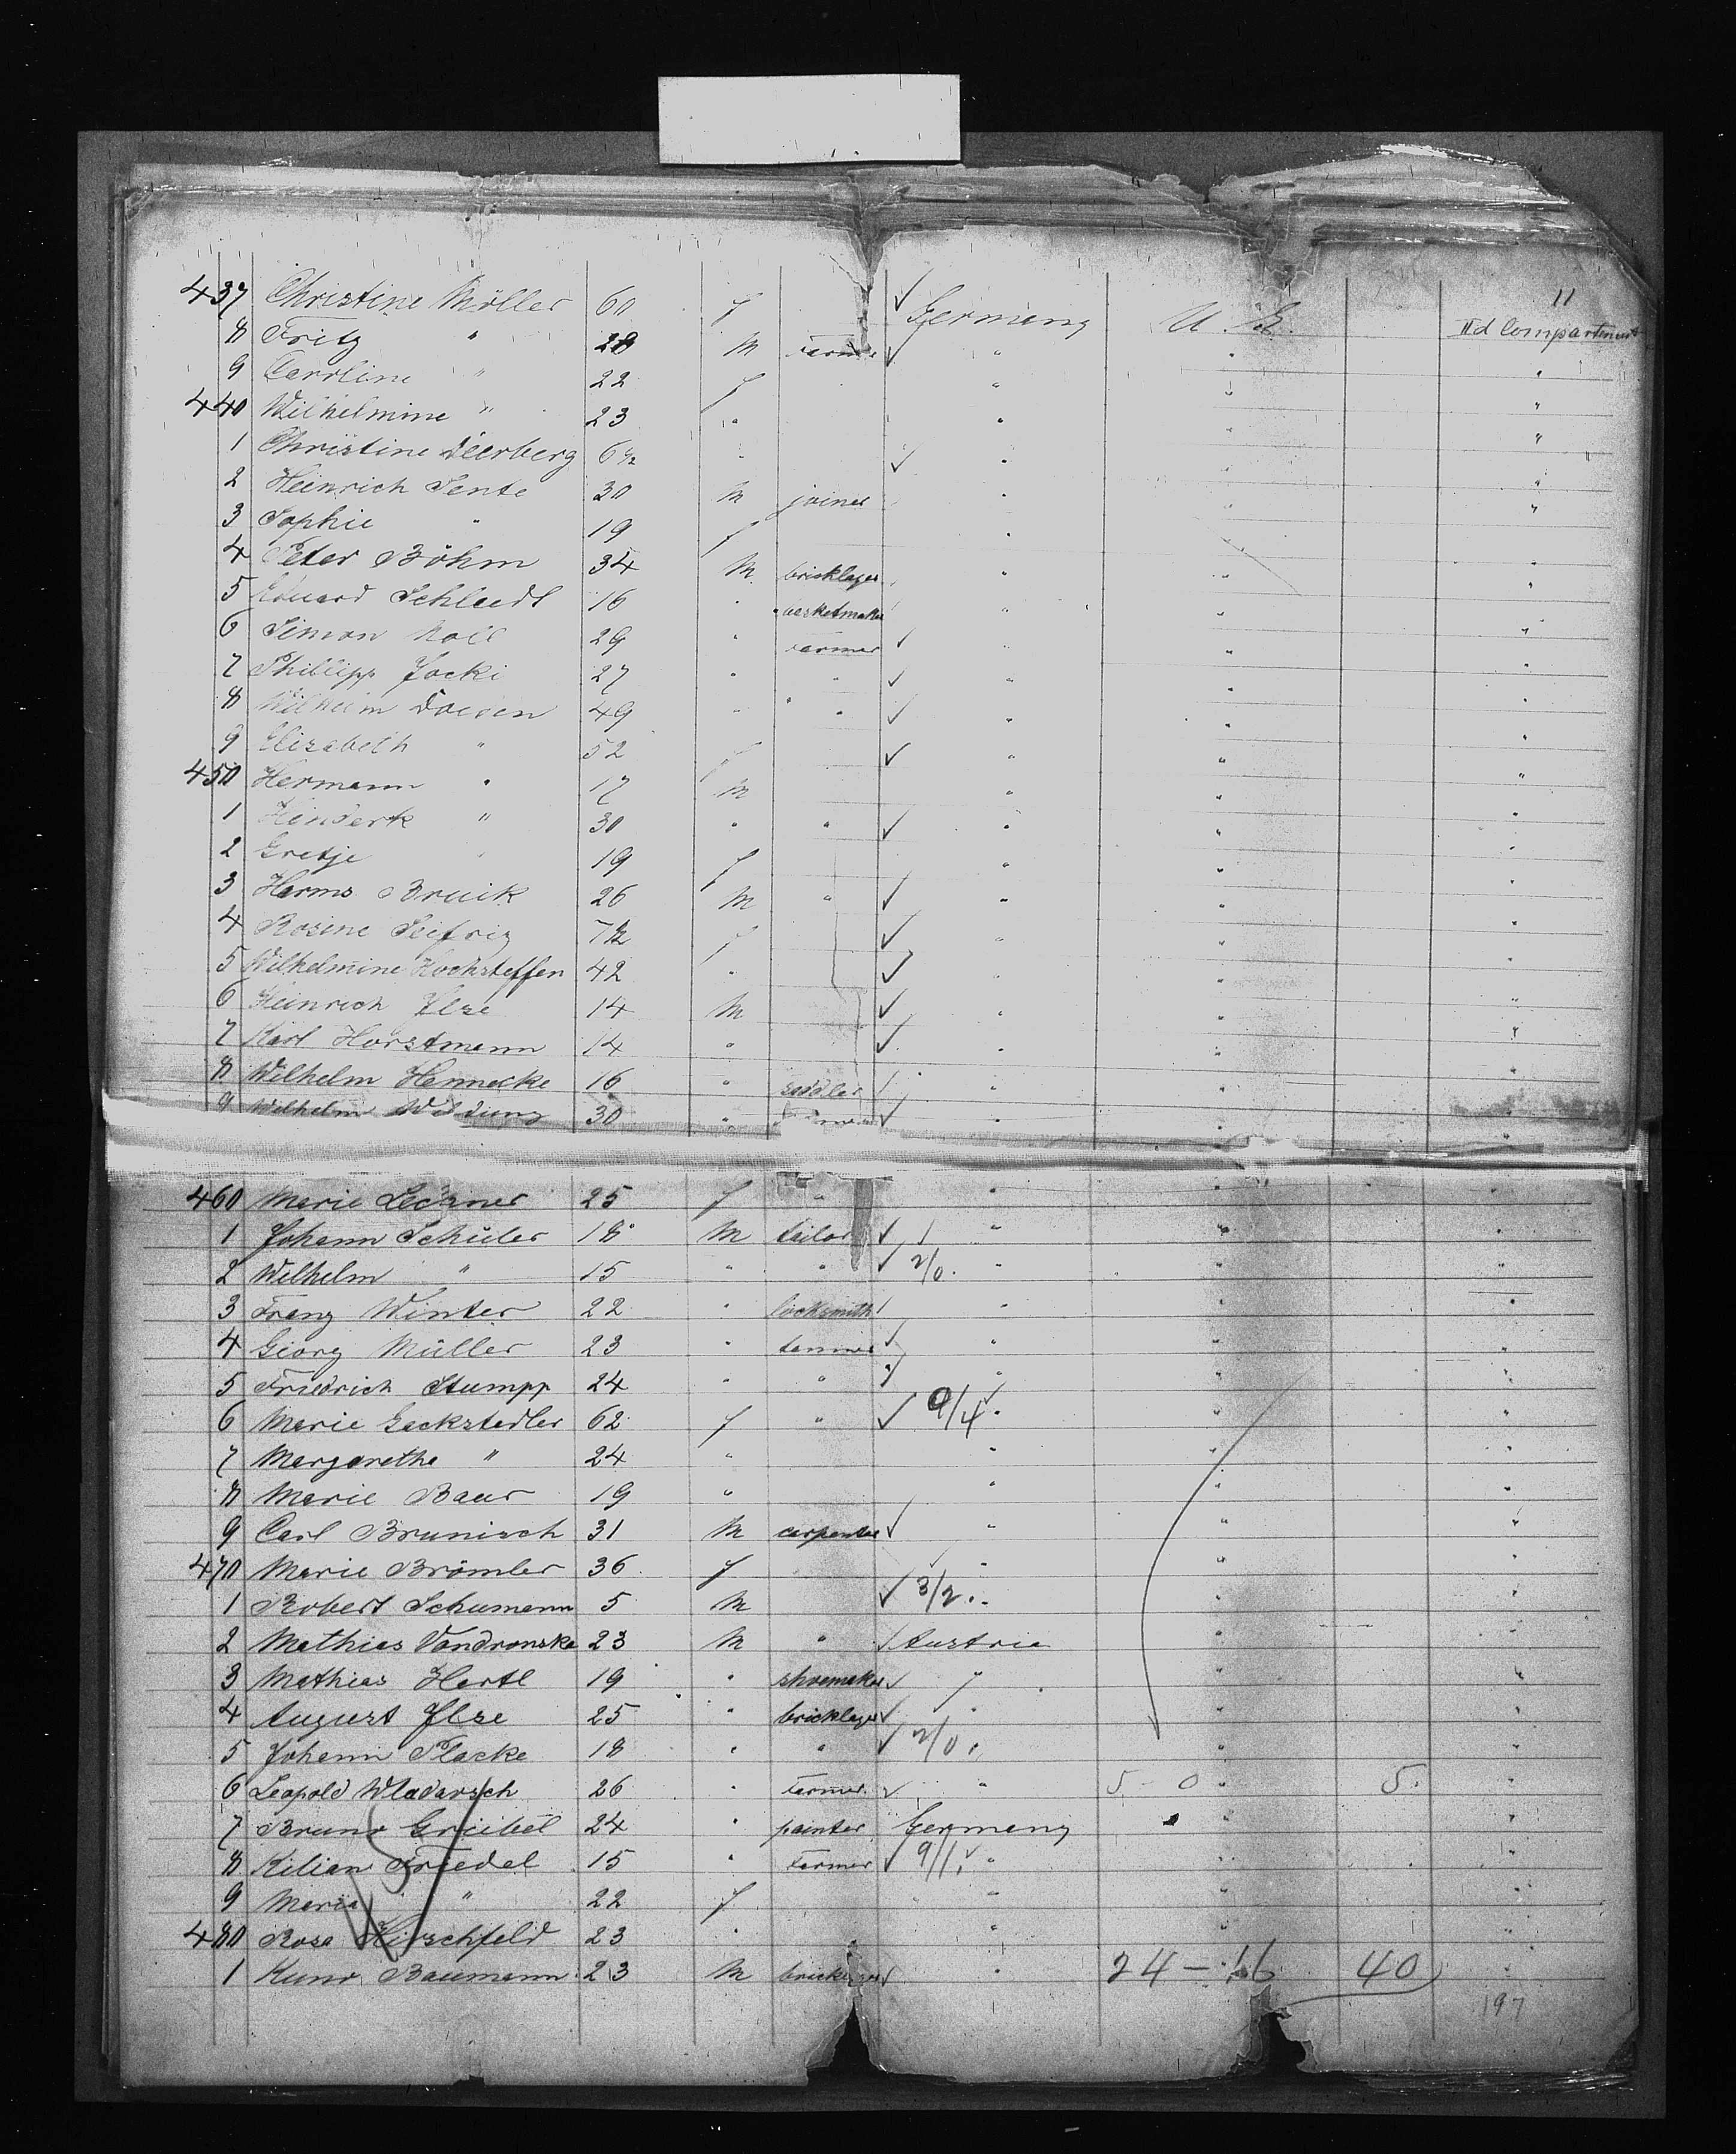 11
437 Christine Möller 60 f Germany U. S. IId Compartement
8 Fritz " 28 M farmer " " "
9 Caroline " 22 f " " "
440 Wilhelmine " 23 " " " "
1 Christine Deerberg 62 " " " "
2 Heinrich Sente 30 M joiner " " "
3 Sophie " 19 f " " "
4 Peter Böhm 34 M bricklayer " " "
5 Eduard Schleidt 16 " basketmaker " " "
6 Simon Noll 29 " farmer " " "
7 Phillipp Jocki 27 " " " " "
8 Wilhelm Doeden 49 " " " " "
9 Elisabeth " 52 f " " "
450 Hermann " 17 M " " "
1 Hinderk " 30 " " " " "
2 Gretje " 19 f " " "
3 Harms Bruik 26 M " " " "
4 Rosine Seifriz f " " "
5 Wilhelmine Hochsteffen 42 " " " "
6 Heinrich Ilse 14 M " " "
7 Karl Horstmann 14 " " " "
8 Wilhelm Hennecke 16 " saddler " " "
9 Wilhelm Wildung 30 " farmer " " "
460 Marie Lechner 25 f " " " "
1 Johann Schüler 18 M tailor " " "
2 Wilhelm " 15 " " 2/0 " " "
3 Franz Winter 22 " locksmith " " "
4 Georg Müller 23 " tanner " " "
5 Friedrich Stumpp 24 " " " " "
6 Marie Gackstedler 62 f " 9/4 " " "
7 Margarethe " 24 " " " "
8 Marie Baur 19 " " " "
9 Carl Brunisch 31 M carpenter " " "
470 Marie Brömler 36 f " " "
1 Robert Schumann 5 M 3/2 " " "
2 Mathias Vondronska 23 M " Austria " "
3 Mathias Hartl 19 " shoemaker " " "
4 August Ilse 25 " bricklayer " " "
5 Johann Placke 18 " " 2/0 " " "
6 Leopold Wladarsch 26 " farmer " 5 - 0 " 5 "
7 Bruno Griebel 24 " painter Germany " "
8 Kilian Friedel 15 " farmer 9/1 " " "
9 Maria " 22 f " " "
480 Rosa Hirschfeld 23 " " " "
1 Kuno Baumann 23 M bricklayer " 24 - 16 40 "
197